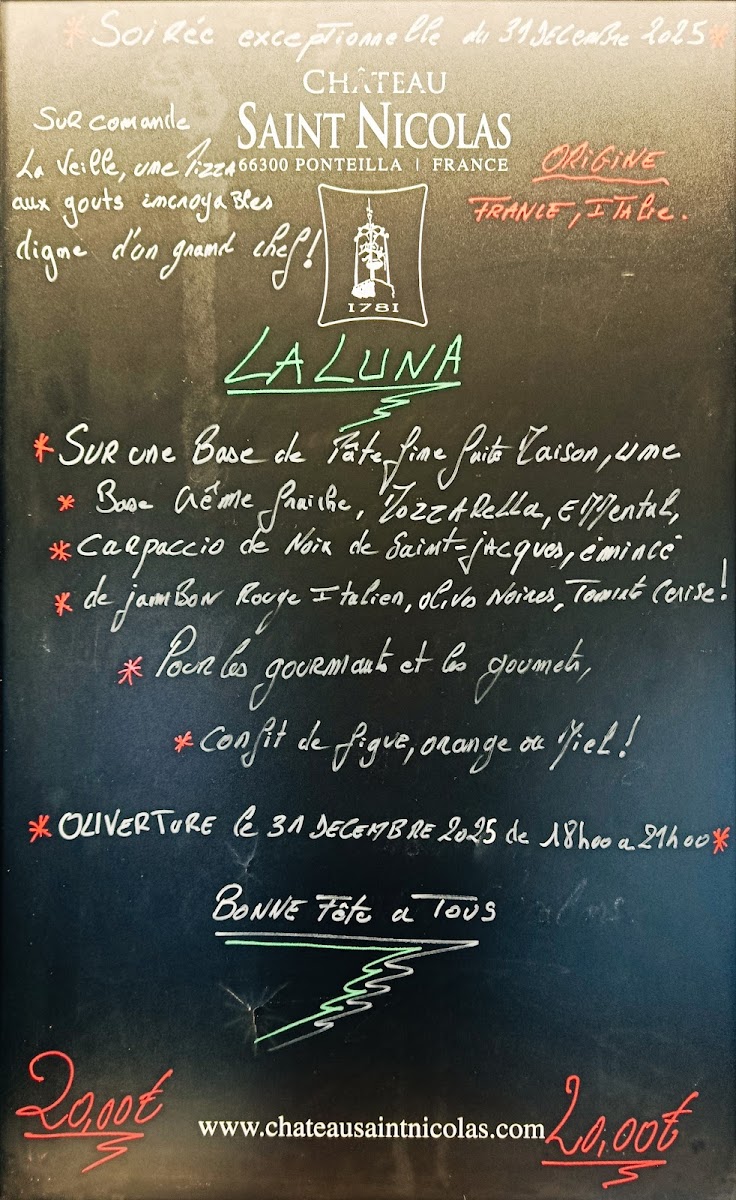 * Soirée exceptionnelle du 31 DECEMBRE 2025 *
CHÂTEAU
SAINT NICOLAS
66300 PONTEILLA | FRANCE
1781
SUR comande
La Veille, une Pizza
aux gouts incroyables
digne d'un grand chef!
ORIGINE
FRANCE, ITalie.
LA LUNA
* SUR une Base de Pâte fine faite Maison, une
* Base Crême fraiche, MozzaRella, EMMental,
* CARPACCIO de Noix de Saint-Jacques, émincé
* de jamBON Rouge Italien, olives Noires, Tomate Cerise!
* Pour les gourmants et les goumets,
* Confit de figue, orange ou Miel!
* OUVERTURE le 31 DECEMBRE 2025 de 18h00 a 21h00 *
BONNE Fête a TOUS
20,00€
www.chateausaintnicolas.com
20,00€